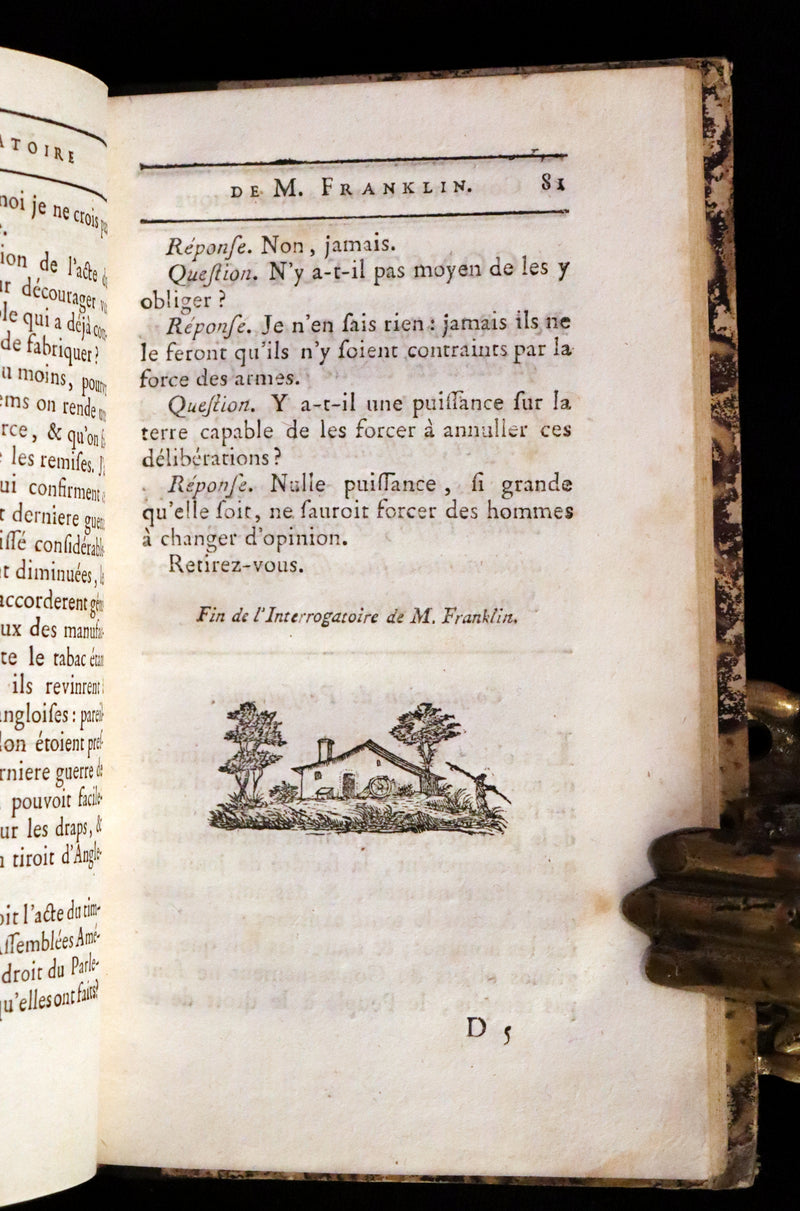 ATOIRE
noi je ne crois
ion de l'acte
r décourager
le qui a déjà
de fabriquer?
u moins,
ems on rende
rce, & qu'on
les remises.
ui confirment
t derniere
issé considérab
t diminuées,
accorderent
ux des manuf
te le tabac
ils revinrent
ngloises:
lon étoient
rniere guerre
pouvoit facile-
ur les draps, &
n tiroit d'Angle-
oit l'acte du tim-
Assemblées Amé-
droit du Parle-
qu'elles ont faits?
DE M. FRANKLIN. 81
Réponse. Non, jamais.
Question. N'y a-t-il pas moyen de les y
obliger ?
Réponse. Je n'en sais rien : jamais ils ne
le feront qu'ils n'y soient contraints par la
force des armes.
Question. Y a-t-il une puissance sur la
terre capable de les forcer à annuller ces
délibérations ?
Réponse. Nulle puissance, si grande
qu'elle soit, ne sauroit forcer des hommes
à changer d'opinion.
Retirez-vous.
Fin de l'Interrogatoire de M. Franklin.
D 5